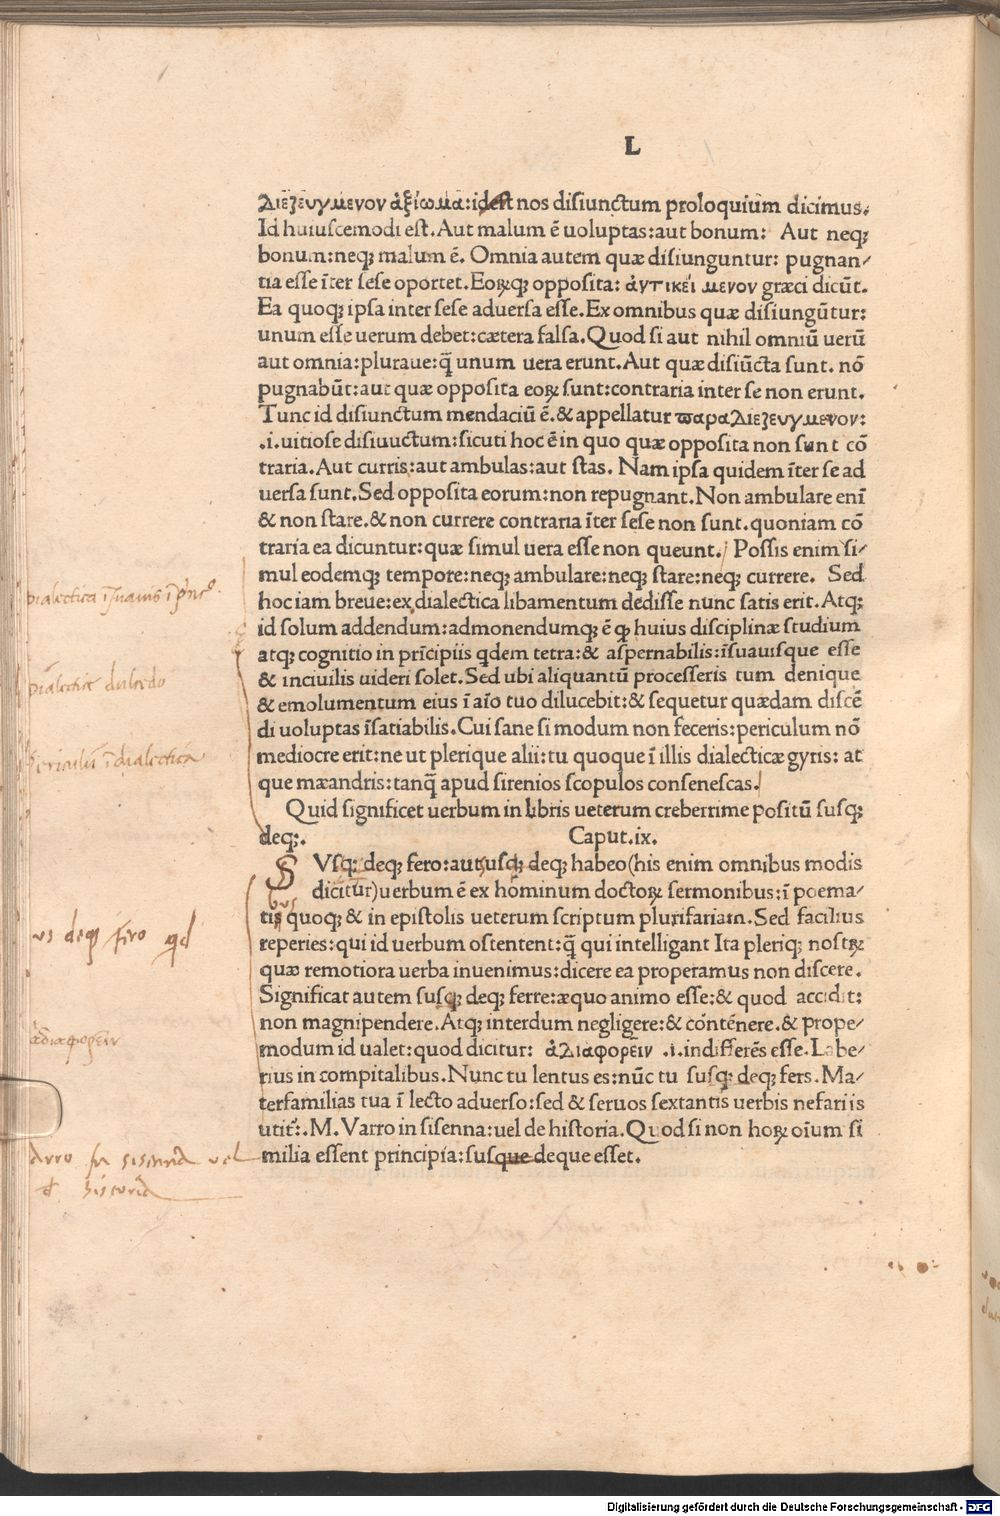 L
Διεζευγμενον ἀξίωμα:idest nos disiunctum proloquium dicimus.
Id huiuscemodi est. Aut malum ē uoluptas:aut bonum: Aut neqꝫ
bonum:neqꝫ malum ē. Omnia autem quæ disiunguntur: pugnan/
tia esse īter sese oportet. Eoꝝqꝫ opposita: ἀντικεί μενον græci dicūt.
Ea quoqꝫ ipsa inter sese aduersa esse. Ex omnibus quæ disiungūtur:
unum esse uerum debet:cætera falsa. Quod si aut nihil omniū uerū
aut omnia:pluraue:q̄ unum uera erunt. Aut quæ disiūcta sunt. nō
pugnabūt:aut quæ opposita eoꝝ sunt:contraria inter se non erunt.
Tunc id disiunctum mendaciū ē. & appellatur παραΔιεζευγμενον:
.i. uitiose disiuuctum:sicuti hoc ē in quo quæ opposita non sunt cō
traria. Aut curris:aut ambulas:aut stas. Nam ipsa quidem īter se ad
uersa sunt. Sed opposita eorum:non repugnant. Non ambulare enī
& non stare. & non currere contraria īter sese non sunt. quoniam cō
traria ea dicuntur:quæ simul uera esse non queunt. Possis enim si/
mul eodemqꝫ tempore:neqꝫ ambulare:neqꝫ stare:neqꝫ currere. Sed
hoc iam breue:ex dialectica libamentum dedisse nunc satis erit. Atqꝫ
id solum addendum:admonendumqꝫ ē qꝫ huius disciplinæ studium
atqꝫ cognitio in prīcipiis qdem tetra:& aspernabilis:īsuauisque esse
& inciuilis uideri solet. Sed ubi aliquantū processeris tum denique
& emolumentum eius ī aīo tuo dilucebit:& sequetur quædam discē
di uoluptas īsatiabilis. Cui sane si modum non feceris:periculum nō
mediocre erit:ne ut plerique alii:tu quoque ī illis dialecticæ gyris: at
que mæandris:tanq̄ apud sirenios scopulos consenescas.
Quid significet uerbum in libris ueterum creberrime positū susqꝫ
deqꝫ. Caput.ix.
S Vsqꝫ deqꝫ fero:aut susqꝫ deqꝫ habeo(his enim omnibus modis
dicitur)uerbum ē ex hominum doctoꝝ sermonibus:ī poema/
tis quoqꝫ & in epistolis ueterum scriptum plurifariam. Sed facilius
reperies:qui id uerbum ostentent:q̄ qui intelligant Ita pleriqꝫ nostꝝ
quæ remotiora uerba inuenimus:dicere ea properamus non discere.
Significat autem susqꝫ deqꝫ ferre:æquo animo esse:& quod accidit:
non magnipendere. Atqꝫ interdum negligere:& cōntēnere. & prope/
modum id ualet:quod dicitur: ἀΔιαφορεῖν .i. indifferēs esse. Labe/
rius in compitalibus. Nunc tu lentus es:nūc tu susqꝫ deqꝫ fers. Ma/
terfamilias tua ī lecto aduerso:sed & seruos sextantis uerbis nefariis
utit᷑:. M. Varro in sisenna:uel de historia. Quod si non hoꝝ oīum si
milia essent principia:susque deque esset.
dialectica īsuauis ī prīnc°
Dialectice dulcedo
periculū ī dialectica
bus
us deqꝫ fero qd
ἀδιαφορεῖν
Arro in sisenna uel
d historia
Digitalisierung gefördert durch die Deutsche Forschungsgemeinschaft - DFG